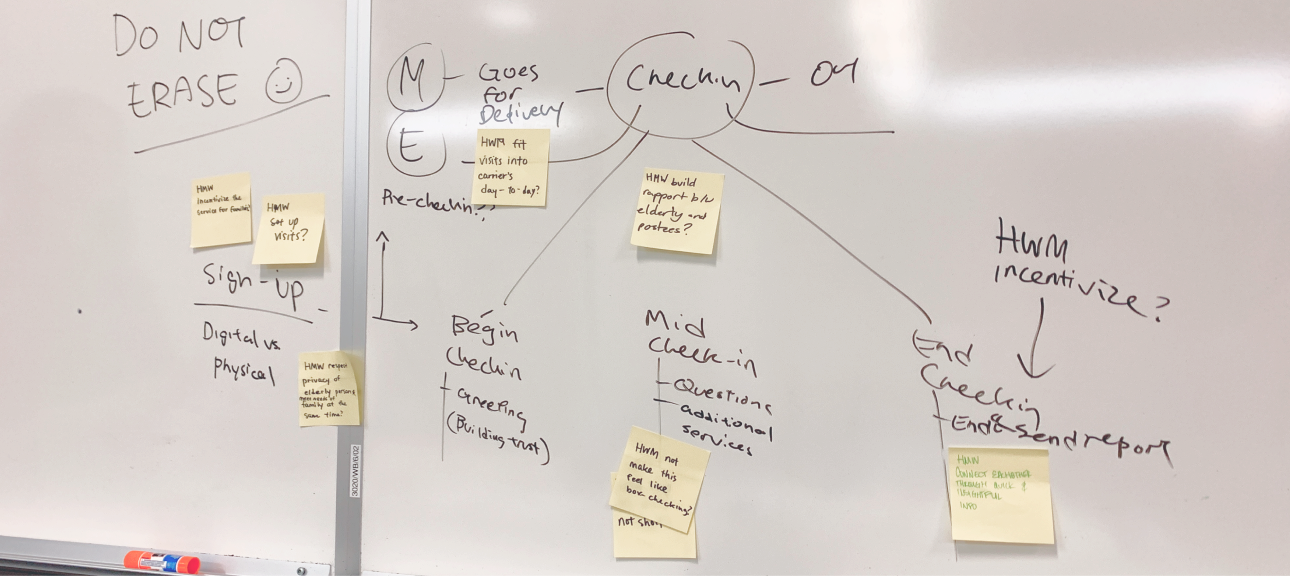 DO NOT
ERASE
HMW
incentivize the
service for families?
HMW
set up
visits?
Sign-up
Digital vs
Physical
HMW
privacy of
elderly person
family at the
same time?
3020/WB/6/02
M - Goes
for
Delivery
E
Checkin
Out
HWM fit
visits into
carrier's
day-to-day?
Pre-checkin??
HMW build
rapport b/w
elderly and
postees?
Begin
Checkin
Greeting
(Building trust)
Mid
Check-in
Questions
additional
services
HWM not
make this
feel like
box checking?
not
HWM
incentivize?
End
Checkin
End & send report
HMW
CONNECT
THROUGH QUICK &
INFO